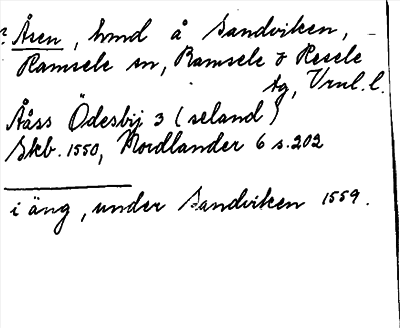 ? Åsen, hmd å Sandviken,
Ramsele sn, Ramsele & Resele
tg, Vrnl. l.
Ååss Ödesbij 3 (seland)
Skb. 1550, Nordlander 6 s. 202
i äng, under Sandviken 1559.